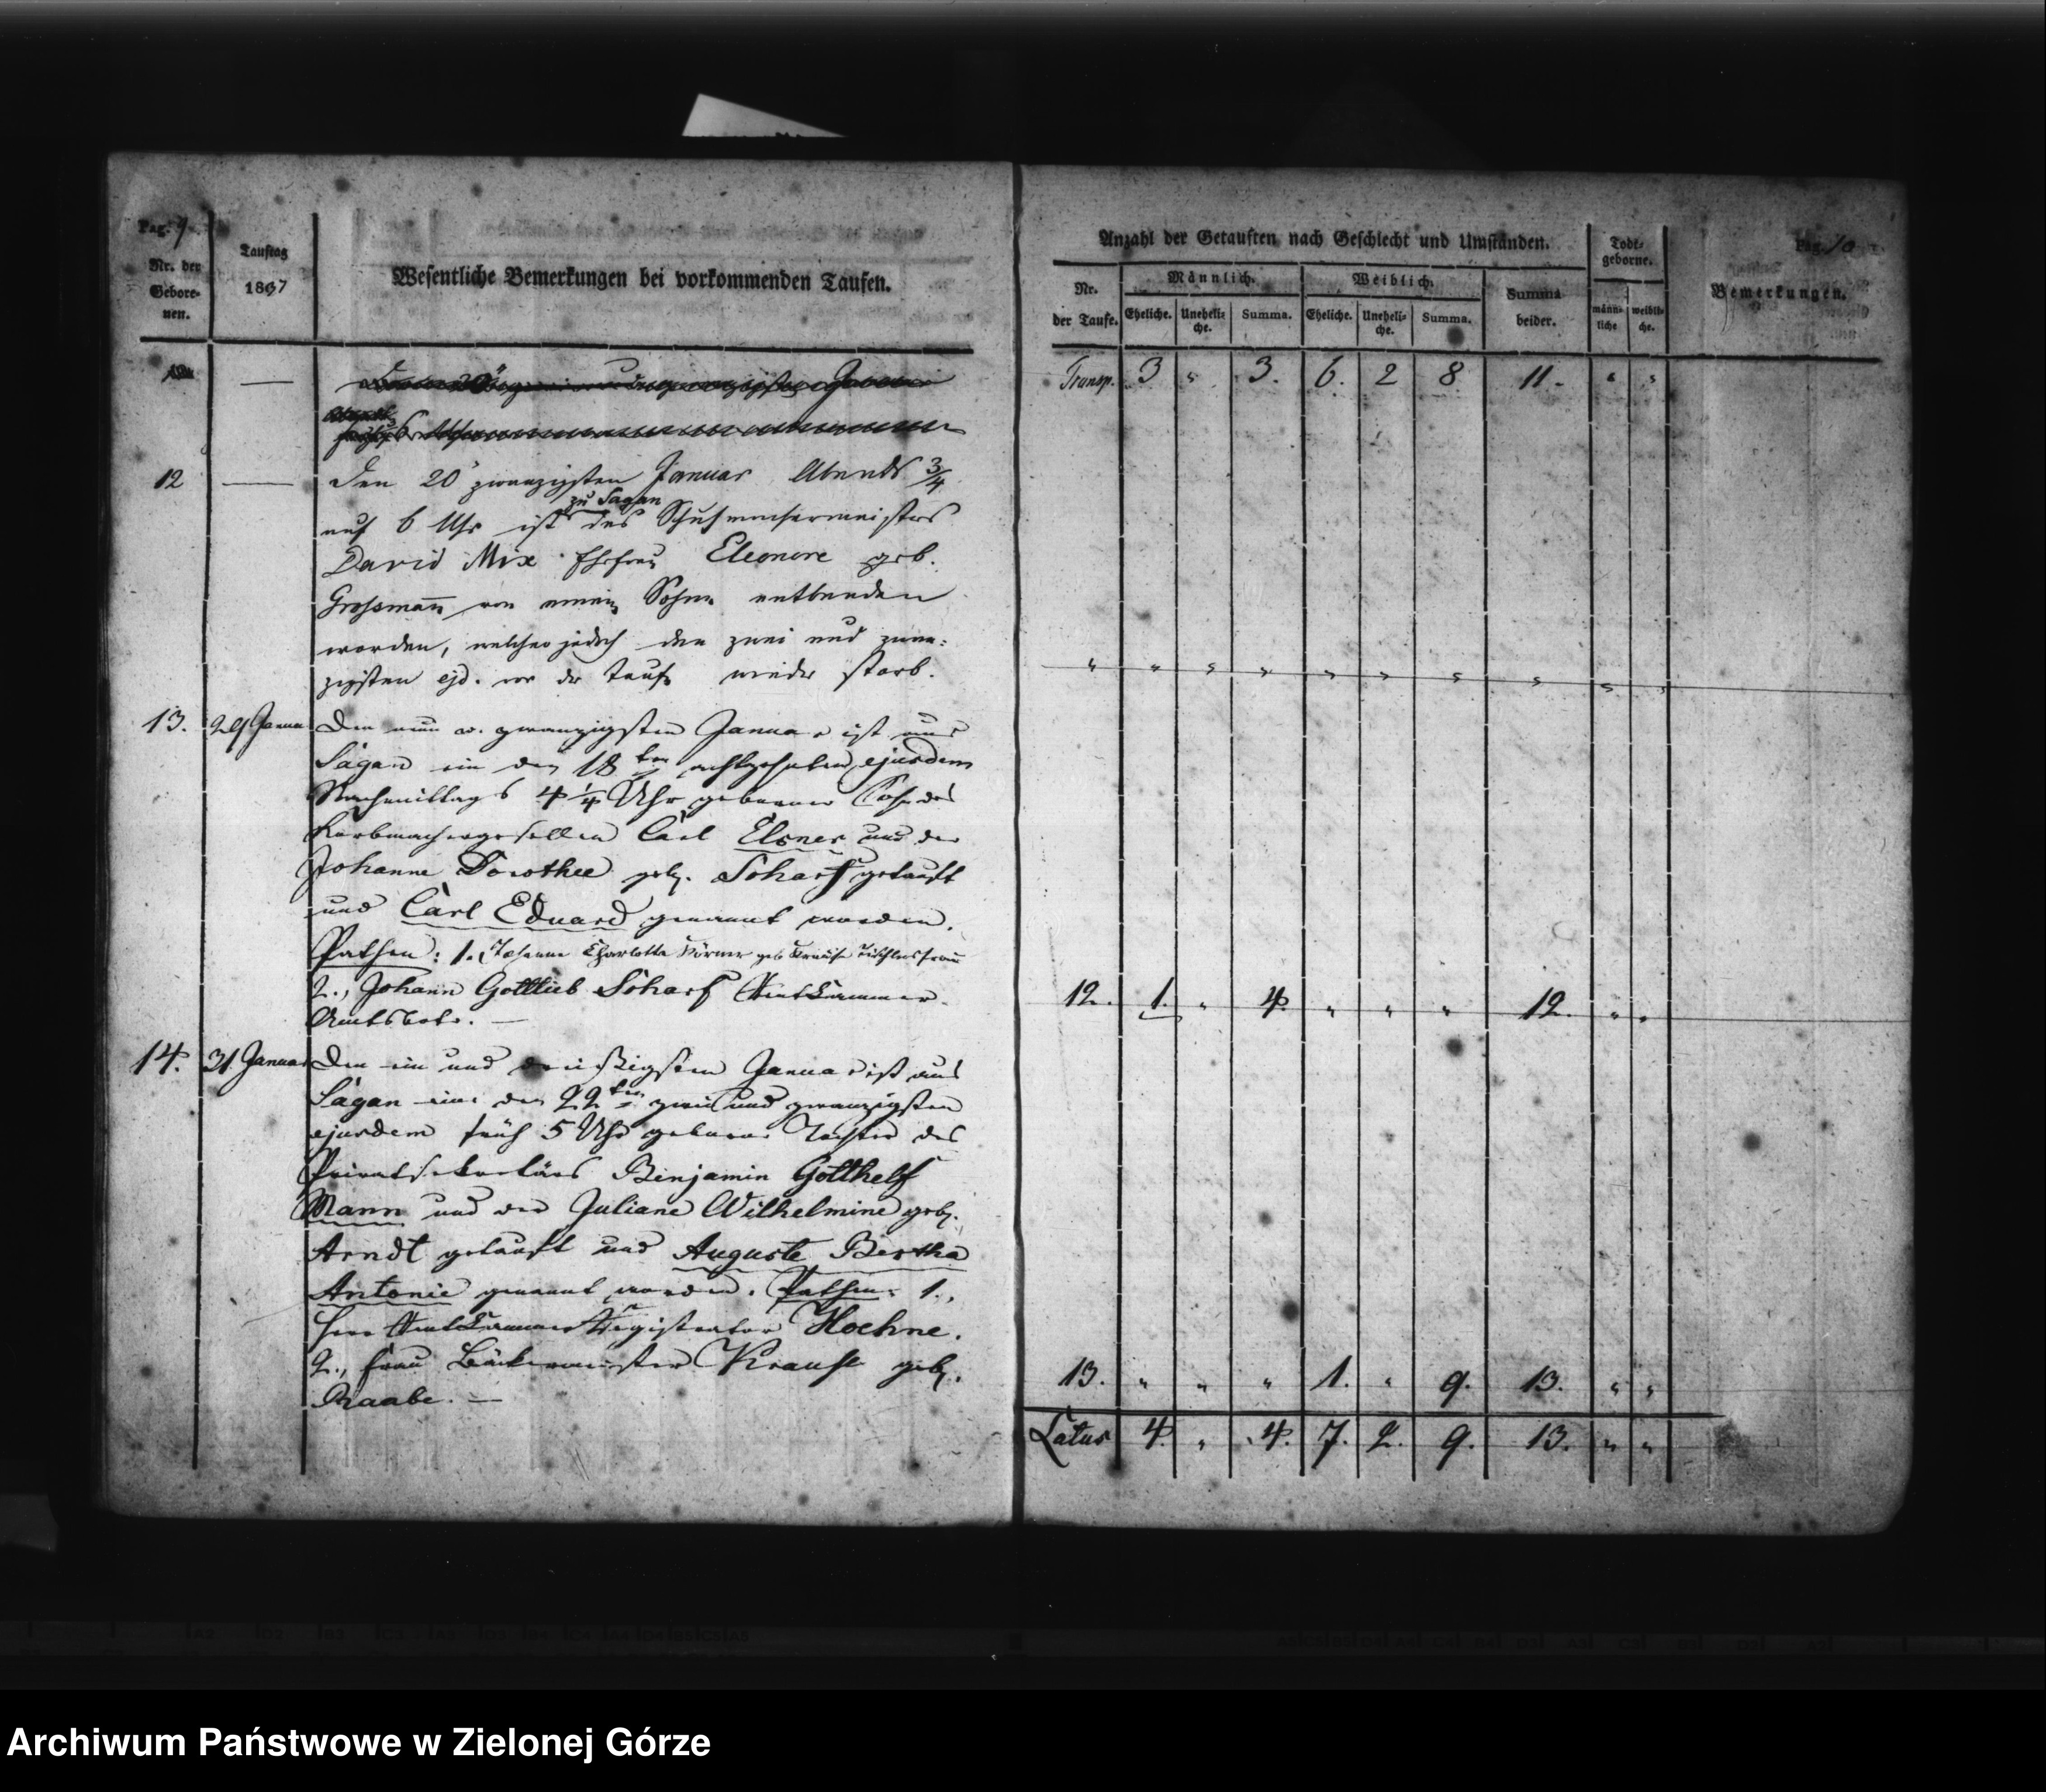 Pag. 9
Nr. der Gebore-nen.
Tauftag 1837
Wesentliche Bemerkungen bei vorkommenden Taufen.
12
Den 20 zwanzigsten Januar Abends 3/4
zu Sagan
auf 6 Uhr ist des Schuhmachermeisters
David Mix Ehefrau Eleonore geb.
Grossmañ von einem Sohne entbunden
worden, welcher jedoch den zwei und zwan-
zigsten ejd. vor der Taufe wieder starb.
13. 29 Januar
Den neun u. zwanzigsten Januar ist aus
Sagan ein den 18ten achtzehnten ejusdem
Nachmittags 4 1/4 Uhr geborner Sohn des
Korbmachergesellen Carl Elsner und der
Johanne Dorothee geb. Scharf getauft
und Carl Eduard genannt worden.
Pathen: 1., Johanne Charlotte Körner geb Krause Tischlersfrau
2., Johann Gottlieb Scharf Rentkammer-
Amtsbote. —
14. 31 Januar
Den ein und dreißigsten Januar ist aus
Sagan eine den 22ten zwei und zwanzigsten
ejusdem früh 5 Uhr geborne Tochter des
Privatsekretärs Binjamin Gotthelf
Mann und der Juliane Wilhelmine geb.
Arndt getauft und Auguste Bertha
Antonie genannt worden. Pathen: 1.,
Herr Rentkammer Registrator Hoehne.
2., Frau Bäckermeister Krause geb.
Raabe. —
Pag. 10
Anzahl der Getauften nach Geschlecht und Umständen.
Todt-geborne.
Bemerkungen.
Nr. der Taufe.
Männlich.
Weiblich.
Summa beider.
Eheliche. Uneheli-che. Summa. Eheliche. Uneheli-che. Summa.
männ-liche weibli-che.
Transp. 3 " 3. 6. 2 8 11. " "
" " " " " " " " " "
12. 1. " 4. " " " 12. " "
13. " " " 1. " 9. 13. " "
Latus 4. " 4. 7. 2. 9. 13. " "
Archiwum Państwowe w Zielonej Górze